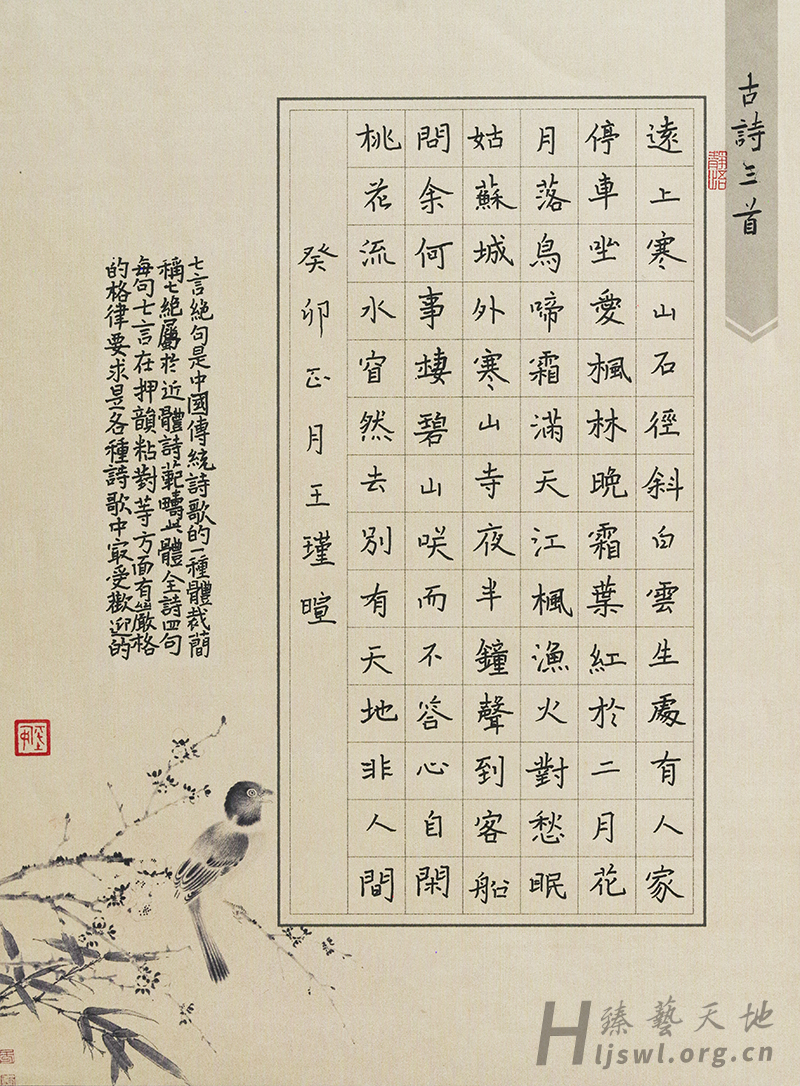 古詩三首
遠上寒山石徑斜白雲生處有人家
停車坐愛楓林晚霜葉紅於二月花
月落鳥啼霜滿天江楓漁火對愁眠
姑蘇城外寒山寺夜半鐘聲到客船
問余何事棲碧山咲而不答心自閑
桃花流水窅然去別有天地非人間
癸卯正月王瑾暄
七言絕句是中國傳統詩歌的一種體裁簡
稱七絕屬於近體詩範疇此體全詩四句
每句七言在押韻粘對等方面有嚴格
的格律要求是各種詩歌中最受歡迎的
臻藝天地
Hljswl.org.cn